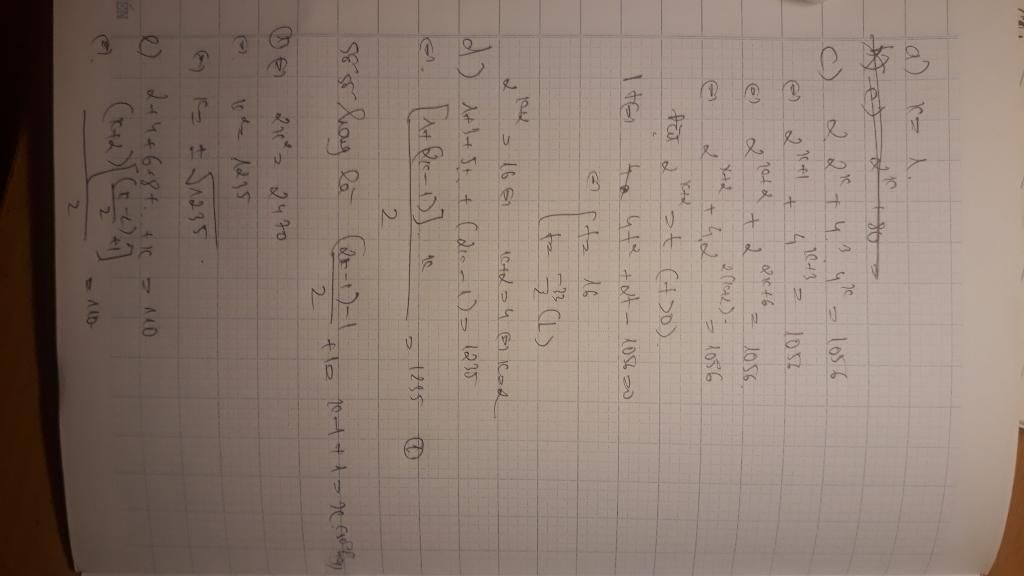 a) x = 1.
c) 2 2^x + 4^3 4^x = 1056
⇔ 2^{x+1} + 4^{x+3} = 1056
⇔ 2^{x+2} + 2^{2x+6} = 1056
⇔ 2^{x+2} + 4.2^{2(x+2)} = 1056
Đặt 2^{x+2} = t (t>0).
4t^2 + 2t - 1056 = 0
⇔ [ t = 16
t = -33/2 (L)
2^{x+2} = 16 ⇔ x+2 = 4 ⇔ x = 2
d) 1+3+5+ + (2x-1) = 1235
⇔ [1+(2x-1)] x / 2 = 1235 ①
số số hạng là (2x-1)-1 / 2 + 1 = x-1+1 = x
① ⇔ 2x^2 = 2470
⇔ x^2 = 1235
⇔ x = ± √1235.
e) 2+4+6+8+...+x = 110
⇔ (x+2)[(x-2)/2 + 1] / 2 = 110